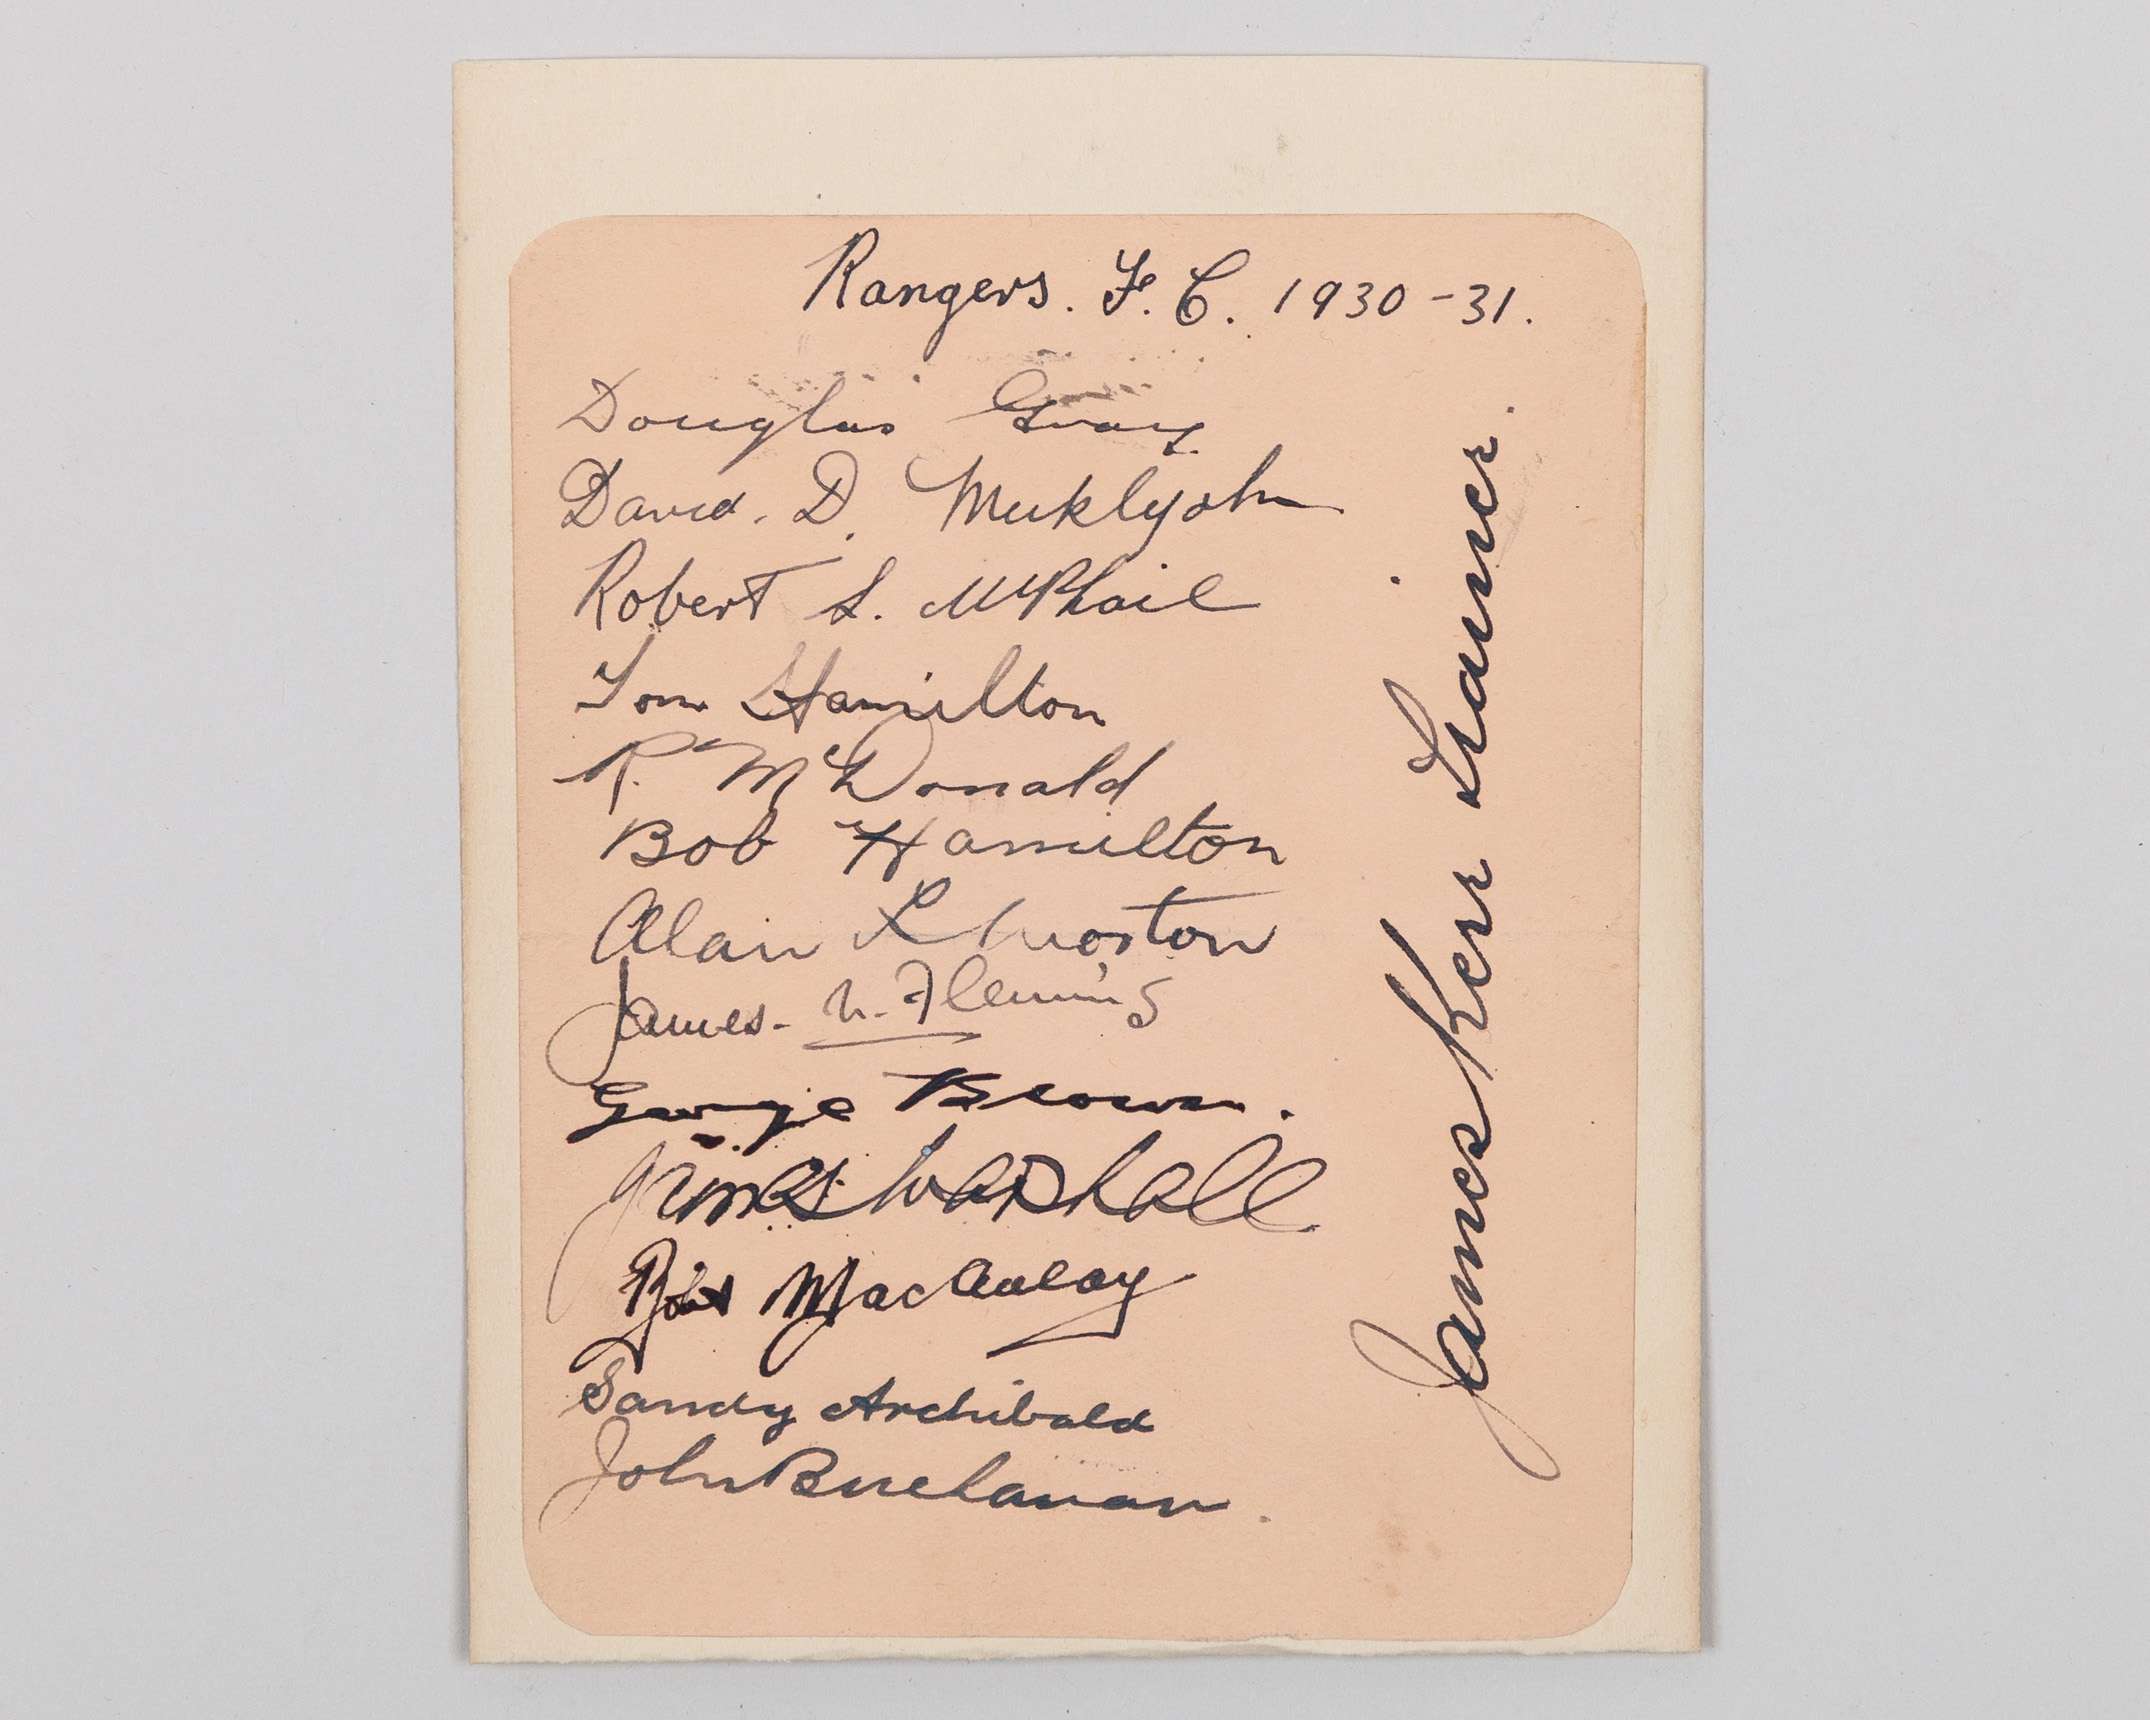 Rangers. F. C. 1930-31.
Douglas Gray
David. D. Meiklejohn
Robert L. McPhail
Tom Hamilton
R. McDonald
Bob Hamilton
Alan L Morton
James. W. Fleming
George Brown.
James Marshall
Robt MacAulay
Sandy Archibald
John Buchanan.
James Kerr